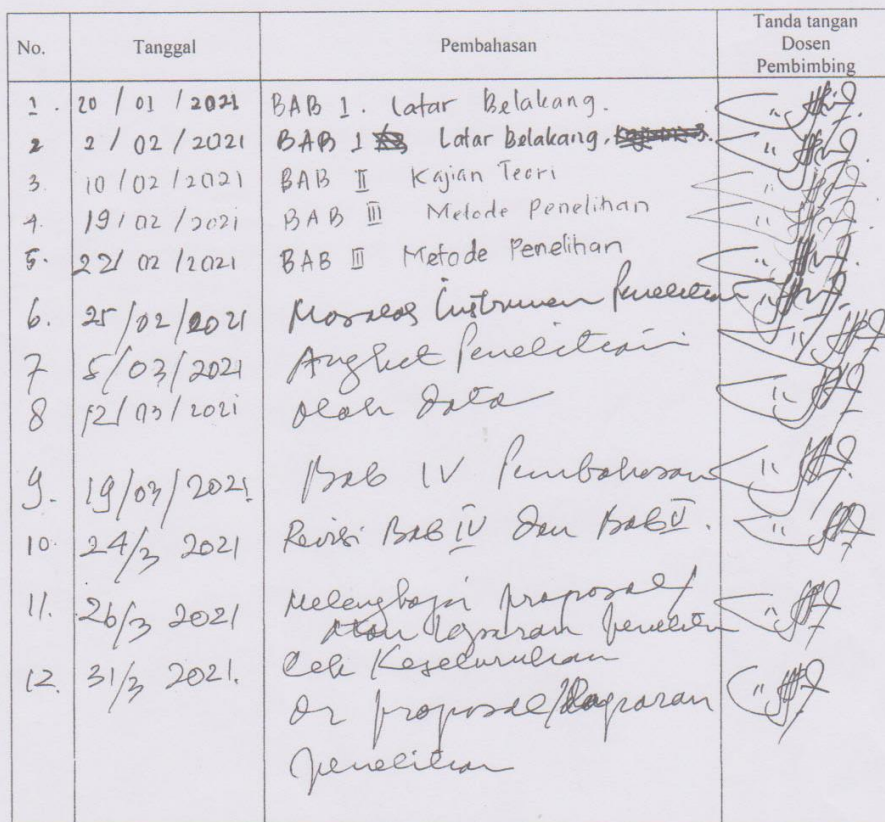 No. Tanggal Pembahasan Tanda tangan
Dosen
Pembimbing
1. 20 / 01 / 2021 BAB 1. Latar Belakang.
2 2 / 02 / 2021 BAB 1 Latar Belakang.
3. 10 / 02 / 2021 BAB II Kajian Teori
4. 19 / 02 / 2021 BAB III Metode Penelitian
5. 22 / 02 / 2021 BAB III Metode Penelitian
6. 25/02/2021 Instrumen Penelitian
7 5/03/2021 Angket Penelitian
8 12/03/2021 Olah Data
9. 19/03/2021. Bab IV Pembahasan
10. 24/3 2021 Revisi Bab IV dan Bab V.
11. 26/3 2021 Melengkapi proposal/
atau laporan penelitian
12. 31/3 2021. Cek Keseluruhan
dr proposal/laporan
penelitian